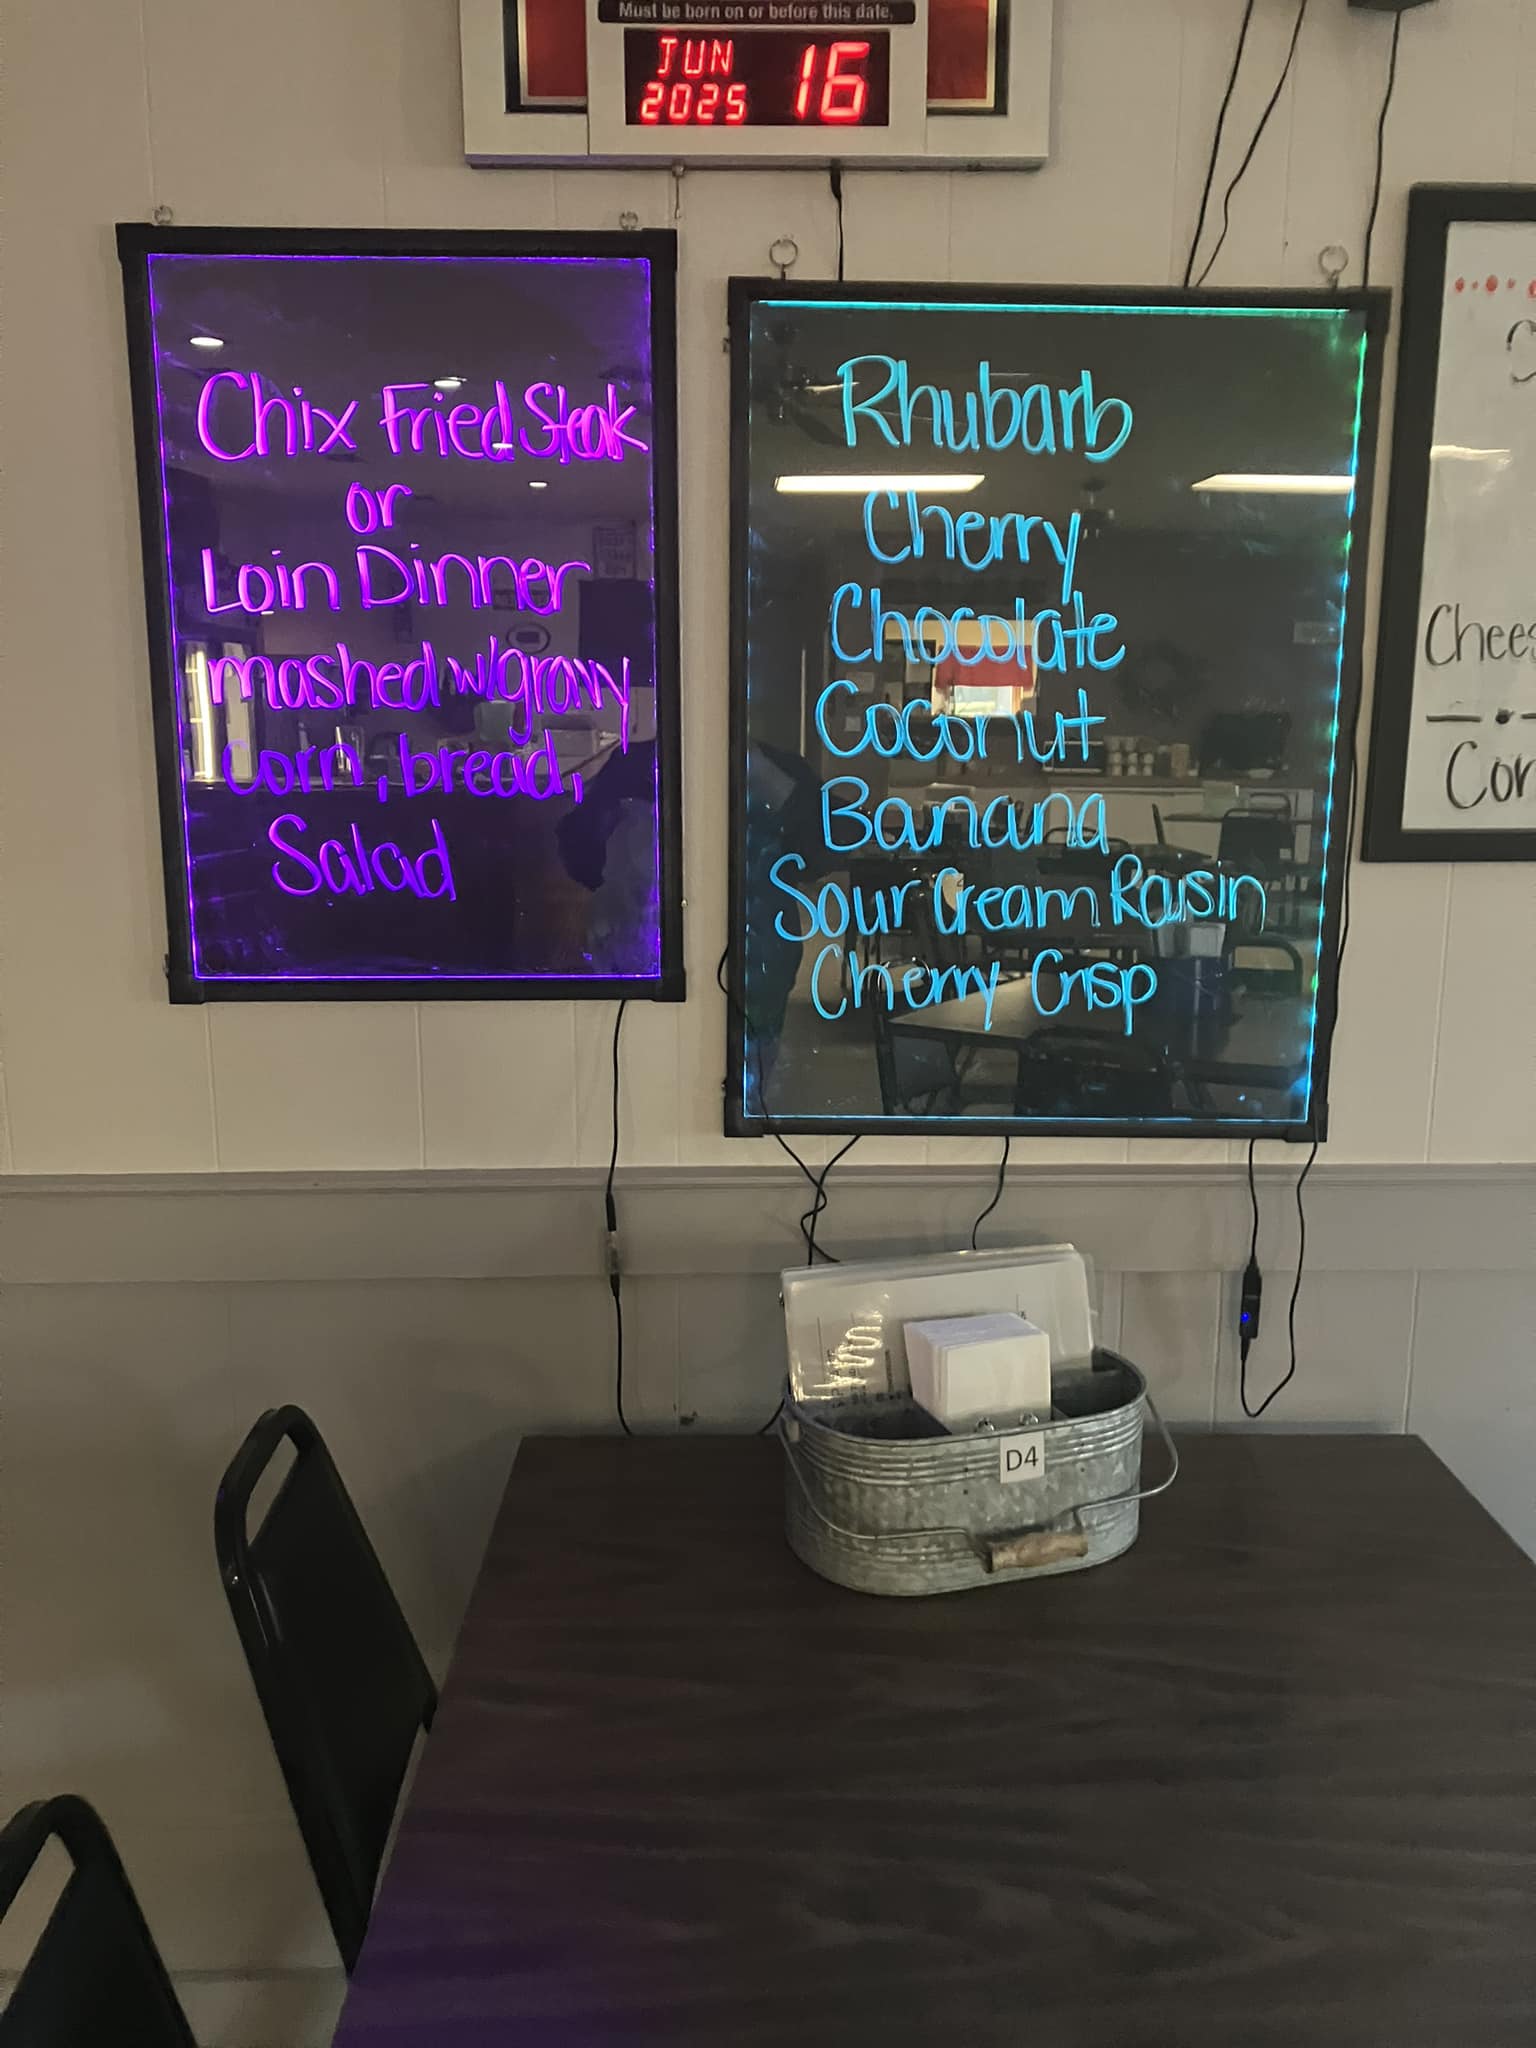 Must be born on or before this date.
JUN 16
2025
Chix Fried Steak
or
Loin Dinner
mashed w/gravy
corn, bread,
Salad
Rhubarb
Cherry
Chocolate
Coconut
Banana
Sour Cream Raisin
Cherry Crisp
Chees
Cor
D4